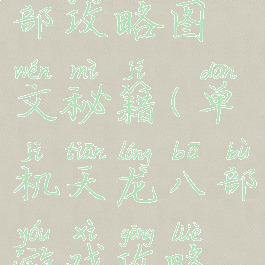 部攻略图
wén mì jí dān
文秘籍(单
jī tiān lóng bā bù
机天龙八部
yóu xì gōng lüè
游戏攻略